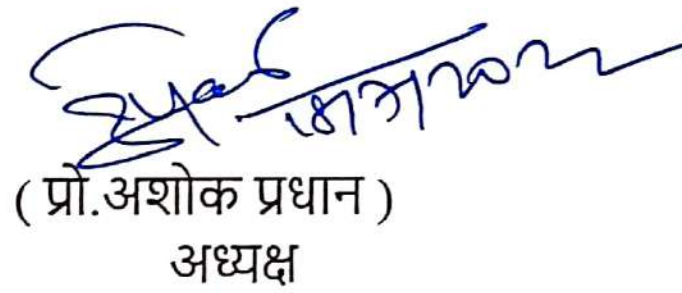 ( प्रो.अशोक प्रधान )
अध्यक्ष